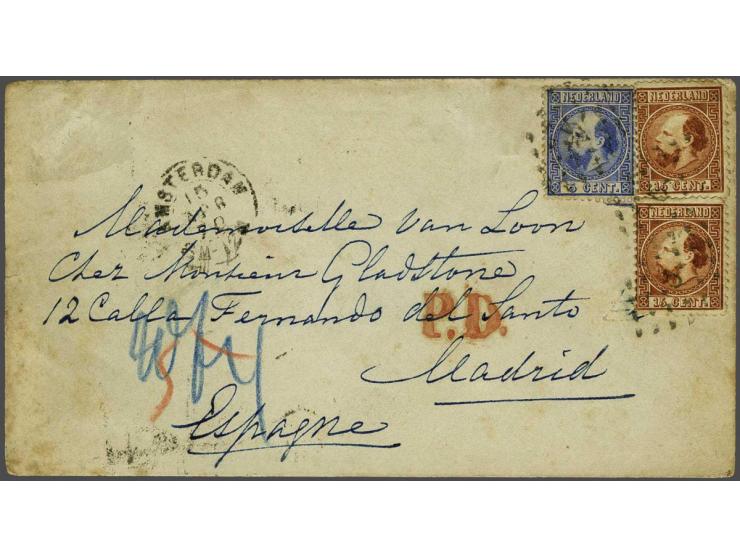 NEDERLAND
NEDERLAND
5 CENT.
15 CENT.
NEDERLAND
15 CENT.
AMSTERDAM
15
Mademoiselle Van Loon
Chez Monsieur Gladstone
12 Calla Fernando del Santo
P.D.
Madrid
Espagne